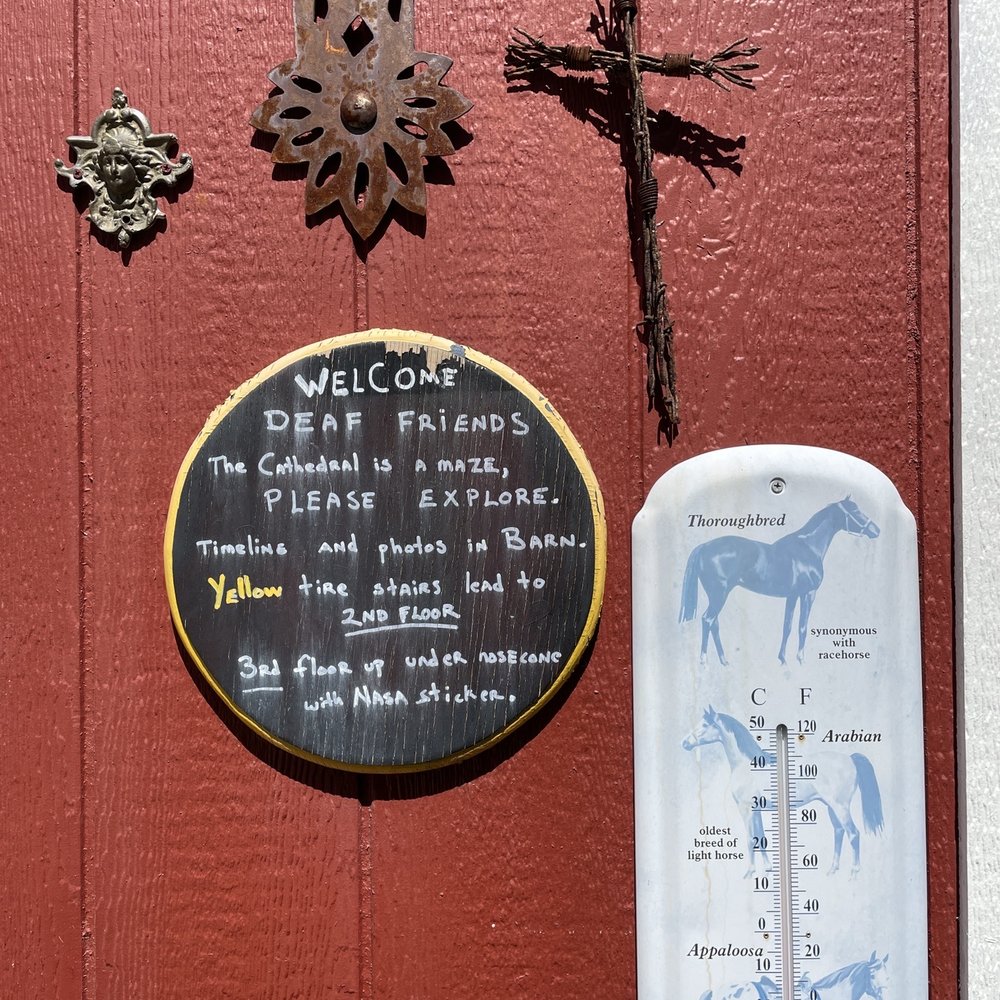 WELCOME
DEAF FRiENDS
The Cathedral is a maze,
PLEASE EXPLORE.
Timeline and photos in BARN.
Yellow tire stairs lead to
2ND FLOOR
3rd floor up under nosecone
with NASA sticker.
Thoroughbred
synonymous
with
racehorse
C F
50 120
Arabian
40 100
30 80
oldest
breed of
light horse
20 60
10 40
0
Appaloosa
20
10
0